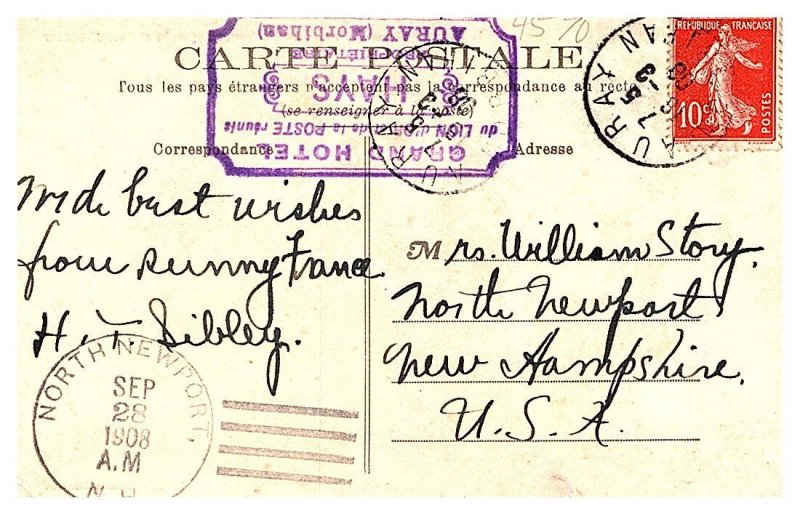 45 70
RÉPUBLIQUE FRANÇAISE
10c
POSTES
CARTE POSTALE
Tous les pays étrangers n'acceptent pas la correspondance au recto
(se renseigner à la poste)
Correspondance
Adresse
GRAND HOTEL
du LION d'OR et de la POSTE réunis
HAYS
PROPRIÉTAIRE
AURAY (Morbihan)
AURAY
With best wishes
from sunny France
H. T. Sibley.
Mrs. William Story.
North Newport
New Hampshire.
U. S. A.
NORTH NEWPORT,
SEP
28
1908
A.M
N.H.